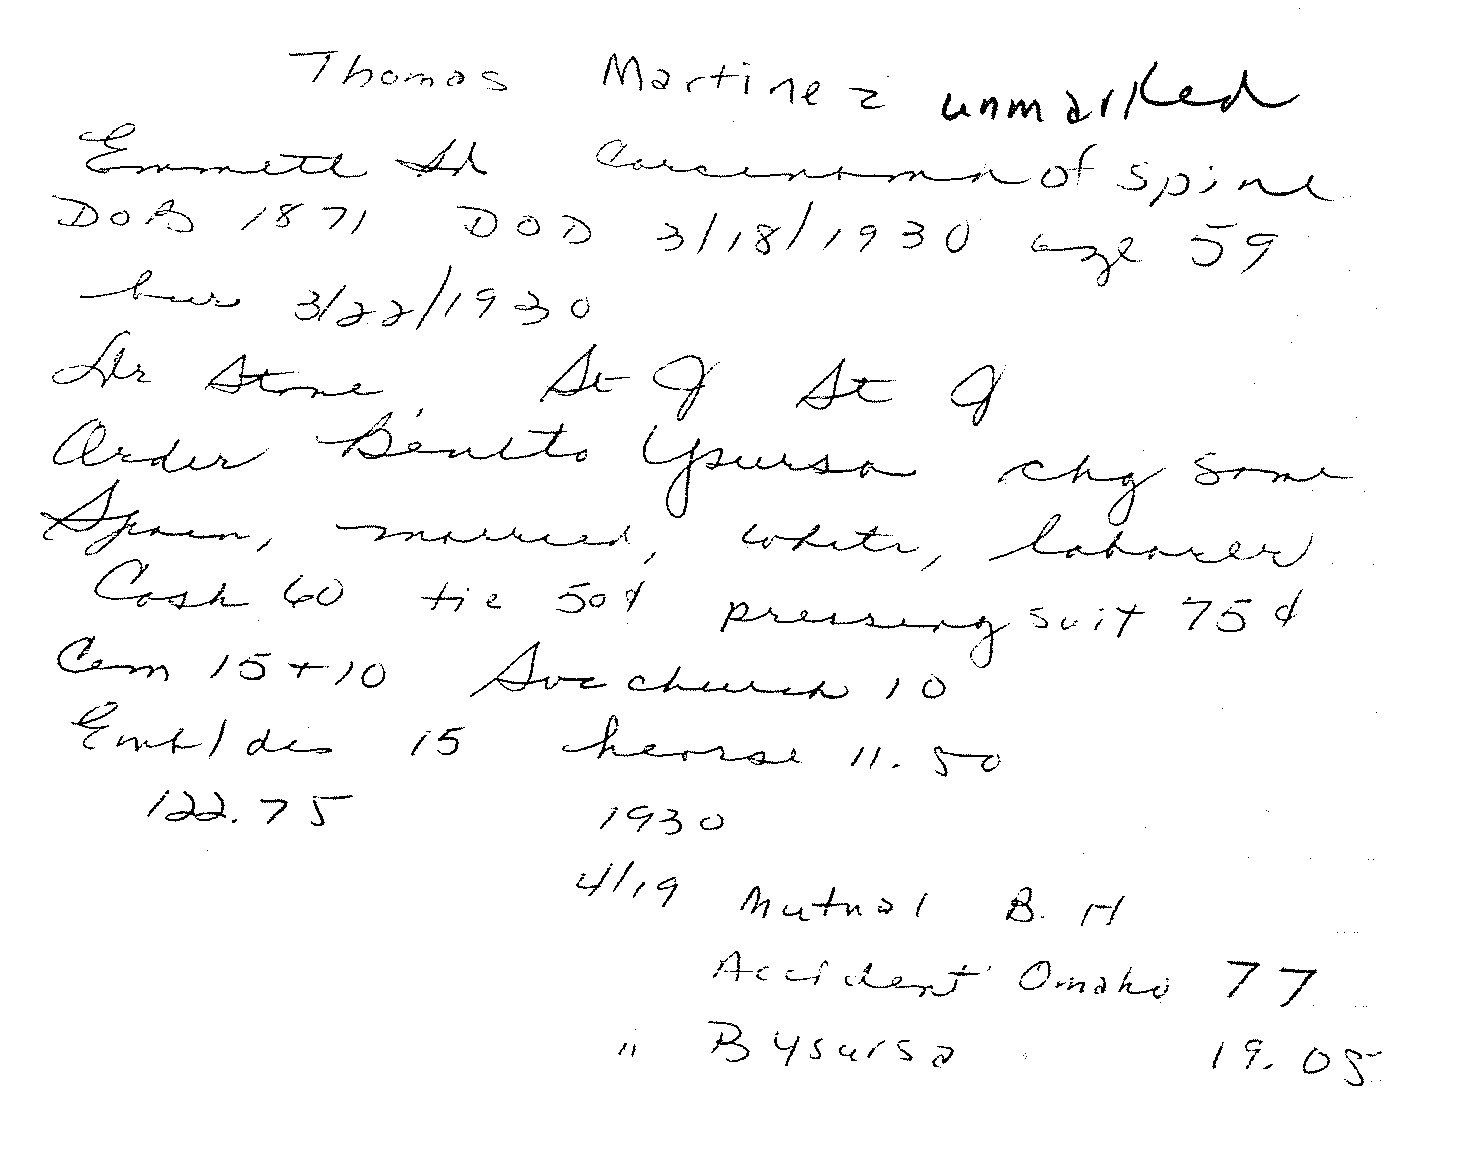 Thomas Martinez unmarked
Emmett Id Carcinoma of spine
DOB 1871 DOD 3/18/1930 age 59
bur 3/22/1930
Dr Stone, St J St J
Order Benito Ysursa chg same
Spain, married, white, laborer
Cash 60 tie 50¢ pressing suit 75¢
Cem 15+10 Svc church 10
Embl des 15 hearse 11.50
122.75 1930
4/19 Mutual B. H
Accident Omaha 77
" B Ysursa 19.05